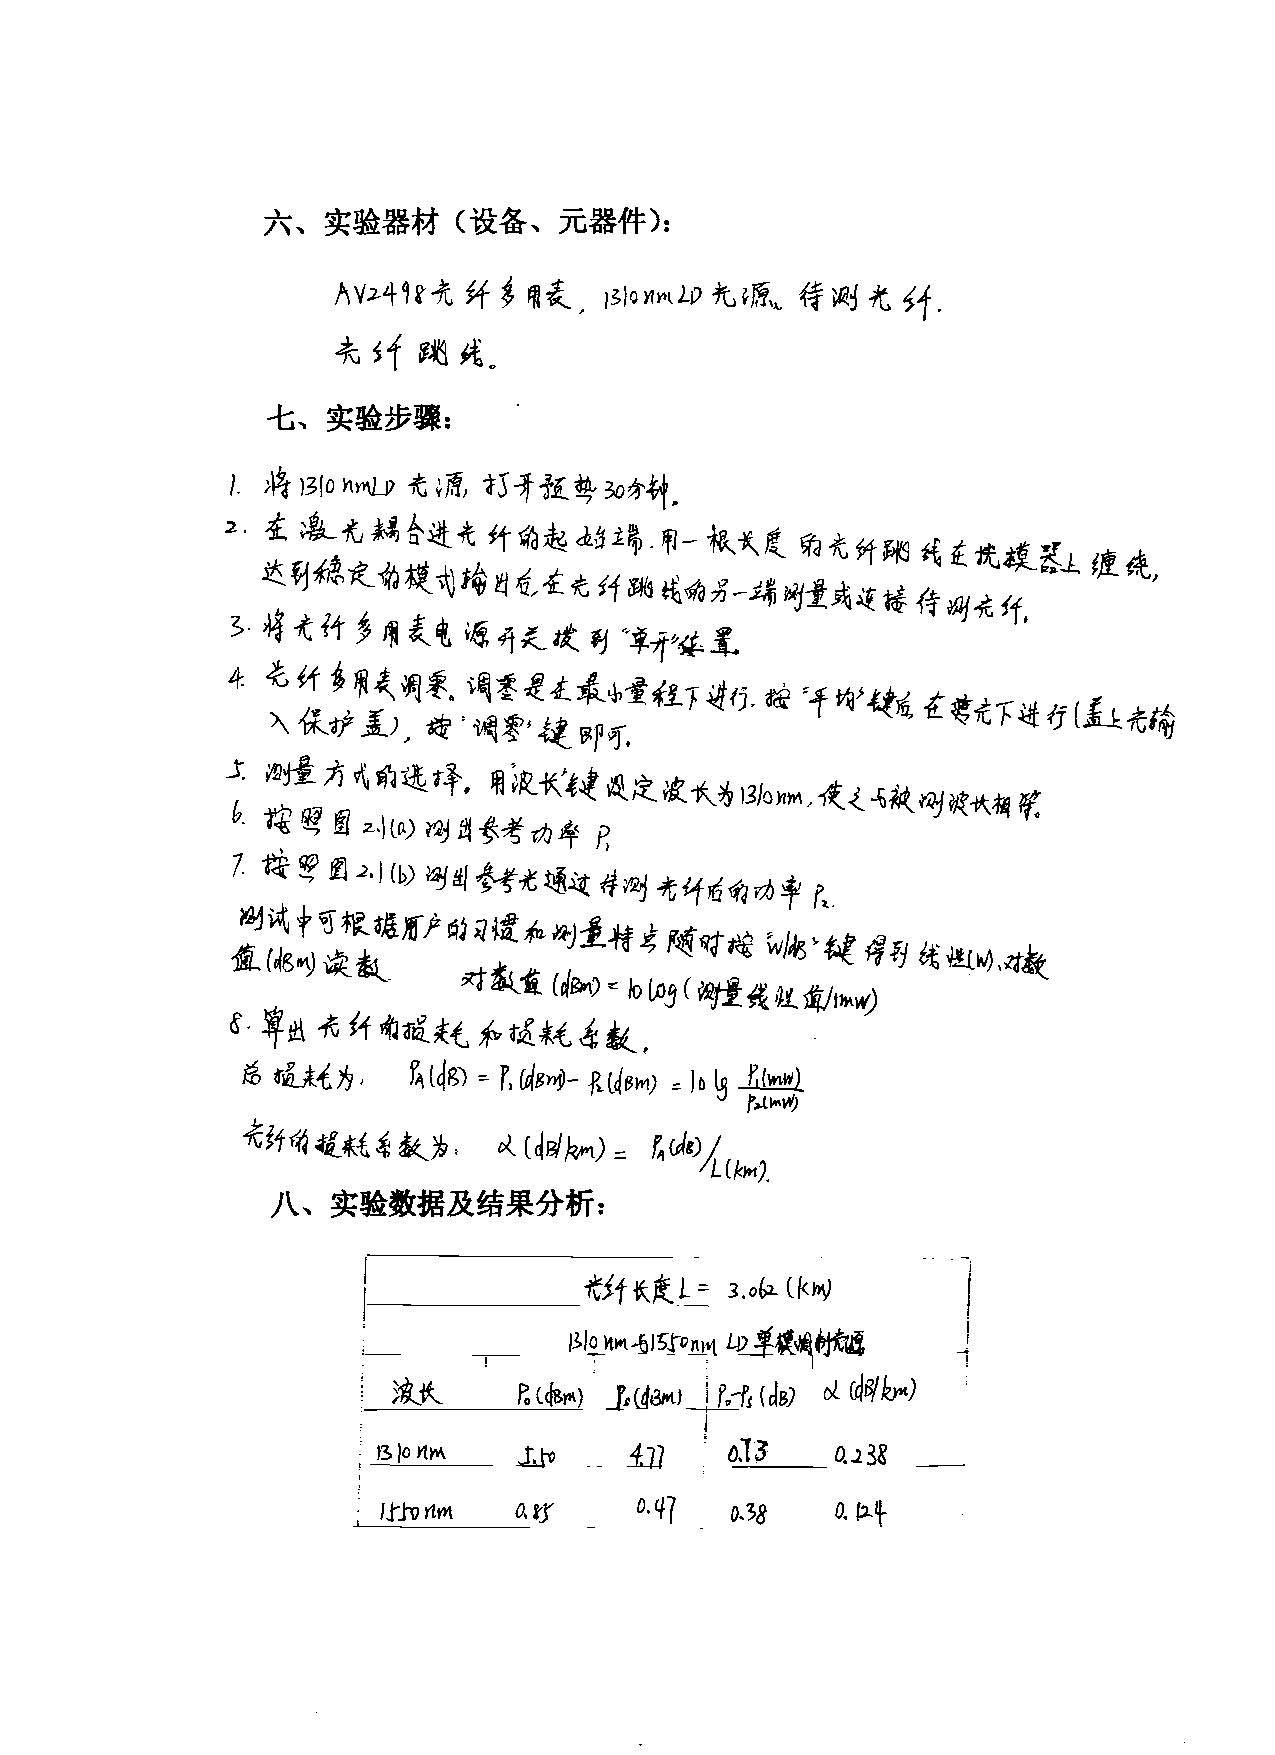 六、实验器材（设备、元器件）：
AV2498光纤多用表，1310nmLD光源、待测光纤.
光纤跳线。
七、实验步骤：
1. 将1310nmLD光源，打开预热30分钟。
2. 在激光耦合进光纤的起始端.用一根长度的光纤跳线在扰模器上缠绕，
达到稳定的模式输出后，在光纤跳线的另一端测量或连接待测光纤.
3. 将光纤多用表电源开关拨到"单开"位置。
4. 光纤多用表调零。调零是在最小量程下进行.按"平均"键后在无光下进行(盖上光输
入保护盖)，按"调零"键即可.
5. 测量方式的选择。用"波长"键设定波长为1310nm，使之与被测波长相等。
6. 按照图2.1(a)测出参考功率P₁
7. 按照图2.1(b)测出参考光通过待测光纤后的功率P₂.
测试中可根据用户的习惯和测量特点随时按"W/dB"键得到线性(W)、对数
值(dBm)读数 对数值(dBm)=10log(测量线性值/1mW)
8. 算出光纤的损耗和损耗系数.
总损耗为: P_A(dB)=P₁(dBm)-P₂(dBm)=10lg P₁(mW)/P₂(mW)
光纤的损耗系数为: α(dB/km)=P_A(dB)/L(km).
八、实验数据及结果分析：
光纤长度L= 3.062(km)
1310nm与1550nm LD单模调制光源
波长 P₀(dBm) Pₛ(dBm) P₀-Pₛ(dB) α(dB/km)
1310nm 5.50 4.77 0.73 0.238
1550nm 0.85 0.47 0.38 0.124